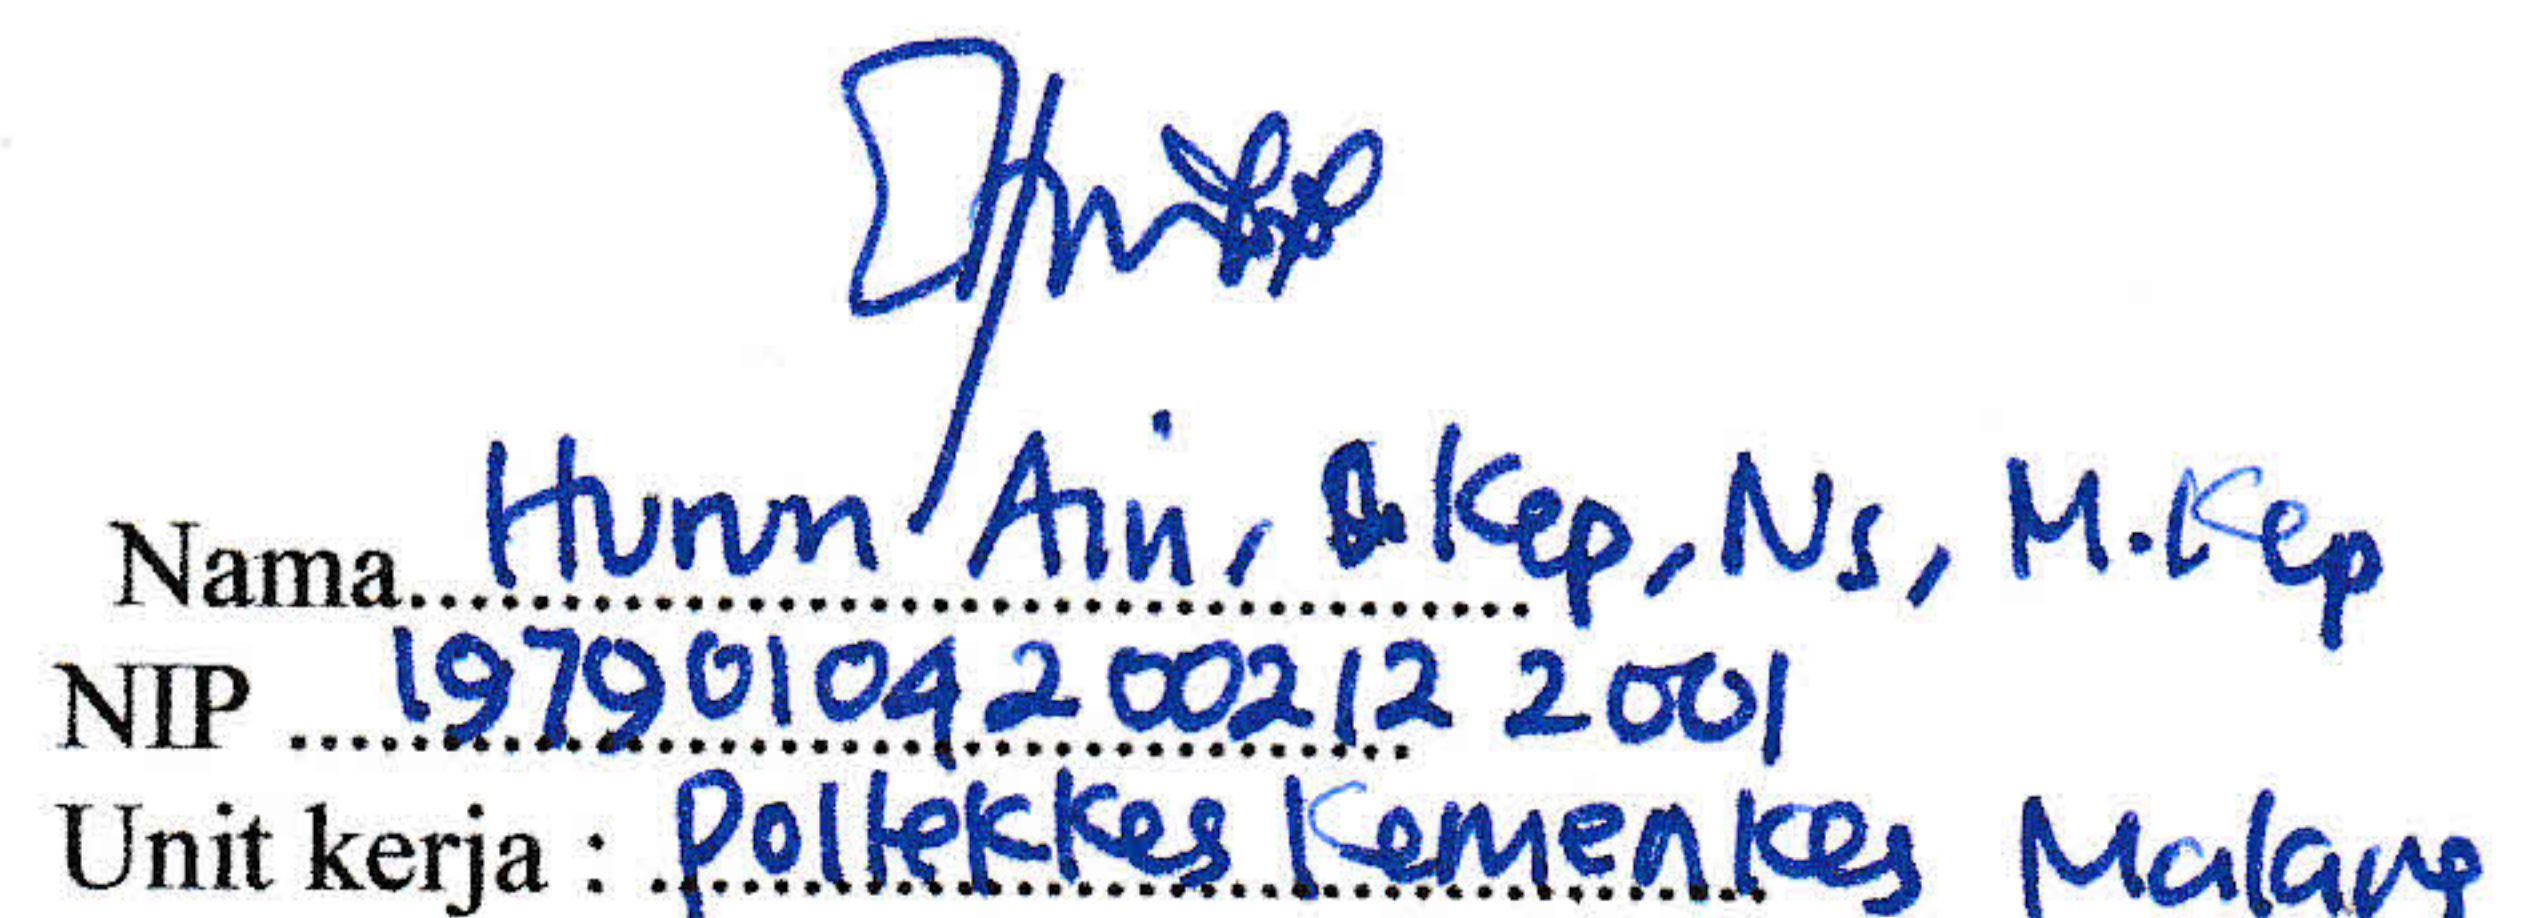 Nama Hurun Ain, S.Kep, Ns, M.Kep
NIP 19790104200212 2001
Unit kerja : Poltekkes Kemenkes Malang